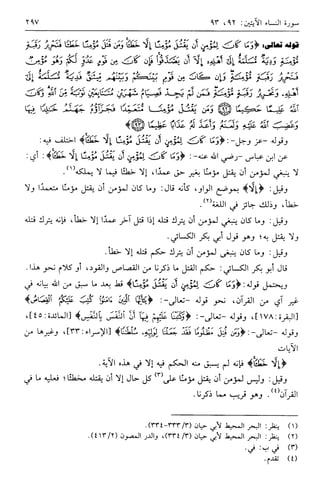 سورة النساء الآيتين: ٩٢، ٩٣ ٢٩٧
قوله تعالى: ﴿وَمَا كَانَ لِمُؤْمِنٍ أَن يَقْتُلَ مُؤْمِنًا إِلَّا خَطَـًٔا وَمَن قَتَلَ مُؤْمِنًا خَطَـًٔا فَتَحْرِيرُ رَقَبَةٍ
مُّؤْمِنَةٍ وَدِيَةٌ مُّسَلَّمَةٌ إِلَىٰٓ أَهْلِهِۦٓ إِلَّآ أَن يَصَّدَّقُوا۟ فَإِن كَانَ مِن قَوْمٍ عَدُوٍّ لَّكُمْ وَهُوَ مُؤْمِنٌ
فَتَحْرِيرُ رَقَبَةٍ مُّؤْمِنَةٍ وَإِن كَانَ مِن قَوْمٍۭ بَيْنَكُمْ وَبَيْنَهُم مِّيثَٰقٌ فَدِيَةٌ مُّسَلَّمَةٌ إِلَىٰٓ
أَهْلِهِۦ وَتَحْرِيرُ رَقَبَةٍ مُّؤْمِنَةٍ فَمَن لَّمْ يَجِدْ فَصِيَامُ شَهْرَيْنِ مُتَتَابِعَيْنِ تَوْبَةً مِّنَ ٱللَّهِ وَكَانَ
ٱللَّهُ عَلِيمًا حَكِيمًا ۝٩٢ وَمَن يَقْتُلْ مُؤْمِنًا مُّتَعَمِّدًا فَجَزَآؤُهُۥ جَهَنَّمُ خَٰلِدًا فِيهَا
وَغَضِبَ ٱللَّهُ عَلَيْهِ وَلَعَنَهُۥ وَأَعَدَّ لَهُۥ عَذَابًا عَظِيمًا ۝٩٣﴾
وقوله -عز وجل-: ﴿وَمَا كَانَ لِمُؤْمِنٍ أَن يَقْتُلَ مُؤْمِنًا إِلَّا خَطَـًٔا﴾ اختلف فيه:
عن ابن عباس -رضي الله عنه-: ﴿وَمَا كَانَ لِمُؤْمِنٍ أَن يَقْتُلَ مُؤْمِنًا إِلَّا خَطَـًٔا﴾: أي:
لا ينبغي لمؤمن أن يقتل مؤمنًا بغير حق عمدًا، إلا خطأ فيما لا يملكه(١).
وقيل: ﴿إِلَّا﴾ بموضع الواو، كأنه قال: وما كان لمؤمن أن يقتل مؤمنًا متعمدًا ولا
خطأ، وذلك جائز في اللغة(٢).
وقيل: وما كان ينبغي لمؤمن أن يترك قتله إذا قتل آخر عمدًا إلا خطأ، فإنه يترك قتله
ولا يقتل به؛ وهو قول أبي بكر الكسائي.
وقيل: وما كان ينبغي لمؤمن أن يترك حكم قتله إلا خطأ.
قال أبو بكر الكسائي: حكم القتل ما ذكرنا من القصاص والقود، أو كلام نحو هذا.
ويحتمل قوله: ﴿وَمَا كَانَ لِمُؤْمِنٍ أَن يَقْتُلَ مُؤْمِنًا إِلَّا خَطَـًٔا﴾ قط بعد ما سبق من الله بيانه في
غير آي من القرآن، نحو قوله -تعالى-: ﴿يَٰٓأَيُّهَا ٱلَّذِينَ ءَامَنُوا۟ كُتِبَ عَلَيْكُمُ ٱلْقِصَاصُ﴾
[البقرة: ١٧٨]، وقوله -تعالى-: ﴿وَكَتَبْنَا عَلَيْهِمْ فِيهَآ أَنَّ ٱلنَّفْسَ بِٱلنَّفْسِ﴾ [المائدة: ٤٥]،
وقوله -تعالى-: ﴿وَمَن قُتِلَ مَظْلُومًا فَقَدْ جَعَلْنَا لِوَلِيِّهِۦ سُلْطَٰنًا﴾ [الإسراء: ٣٣]، وغيرها من
الآيات
﴿إِلَّا خَطَـًٔا﴾ فإنه لم يسبق منه الحكم فيه إلا في هذه الآية.
وقيل: وليس لمؤمن أن يقتل مؤمنًا على(٣) كل حال إلا أن يقتله مخطئًا؛ فعليه ما في
القرآن(٤)، وهو قريب مما ذكرنا.
(١) ينظر: البحر المحيط لأبي حيان (٣/ ٣٣٣-٣٣٤).
(٢) ينظر: البحر المحيط لأبي حيان (٣/ ٣٣٤)، والدر المصون (٢/ ٤١٣).
(٣) في ب: في.
(٤) تقدم.